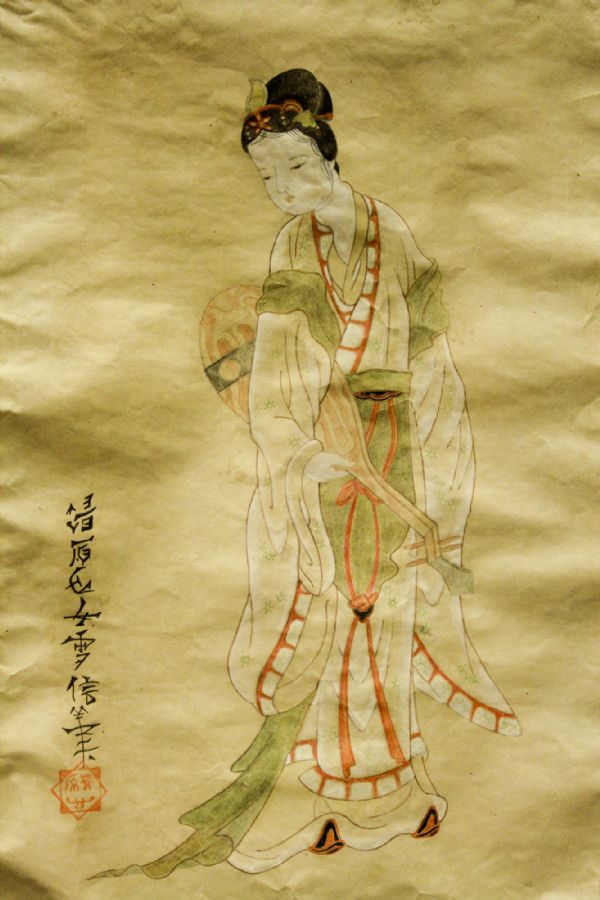 清原氏女雪信筆